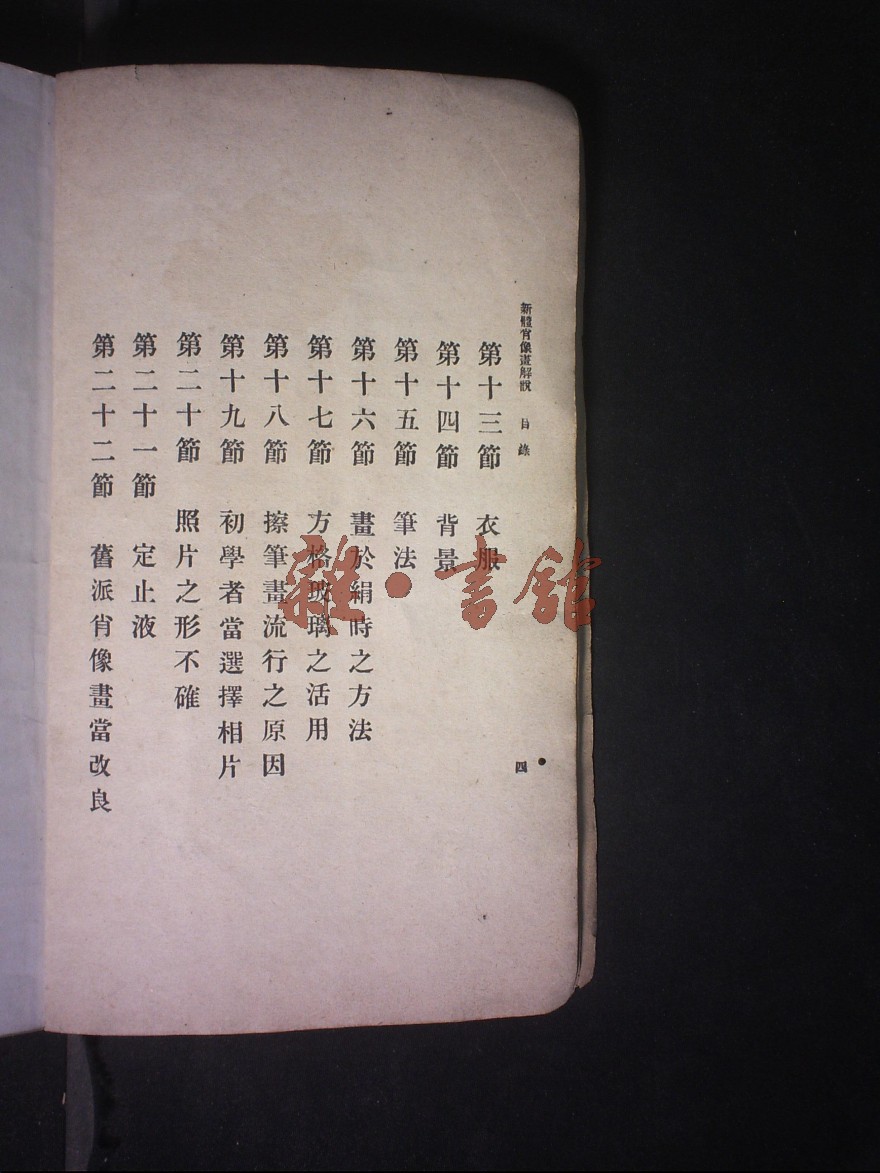 新體肖像畫解說 目錄 四
第十三節 衣服
第十四節 背景
第十五節 筆法
第十六節 畫於絹時之方法
第十七節 方格玻璃之活用
第十八節 擦筆畫流行之原因
第十九節 初學者當選擇相片
第二十節 照片之形不確
第二十一節 定止液
第二十二節 舊派肖像畫當改良
雜·書館